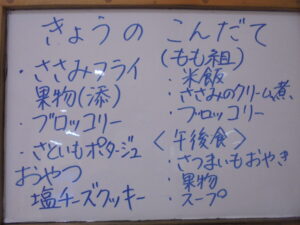 きょうの こんだて
・ささみフライ
果物(添)
・ブロッコリー
・さといもポタージュ
おやつ
塩チーズクッキー
(もも組)
・米飯
・ささみのクリーム煮、
・ブロッコリー
<午後食>
・さつまいもおやき
・果物
・スープ